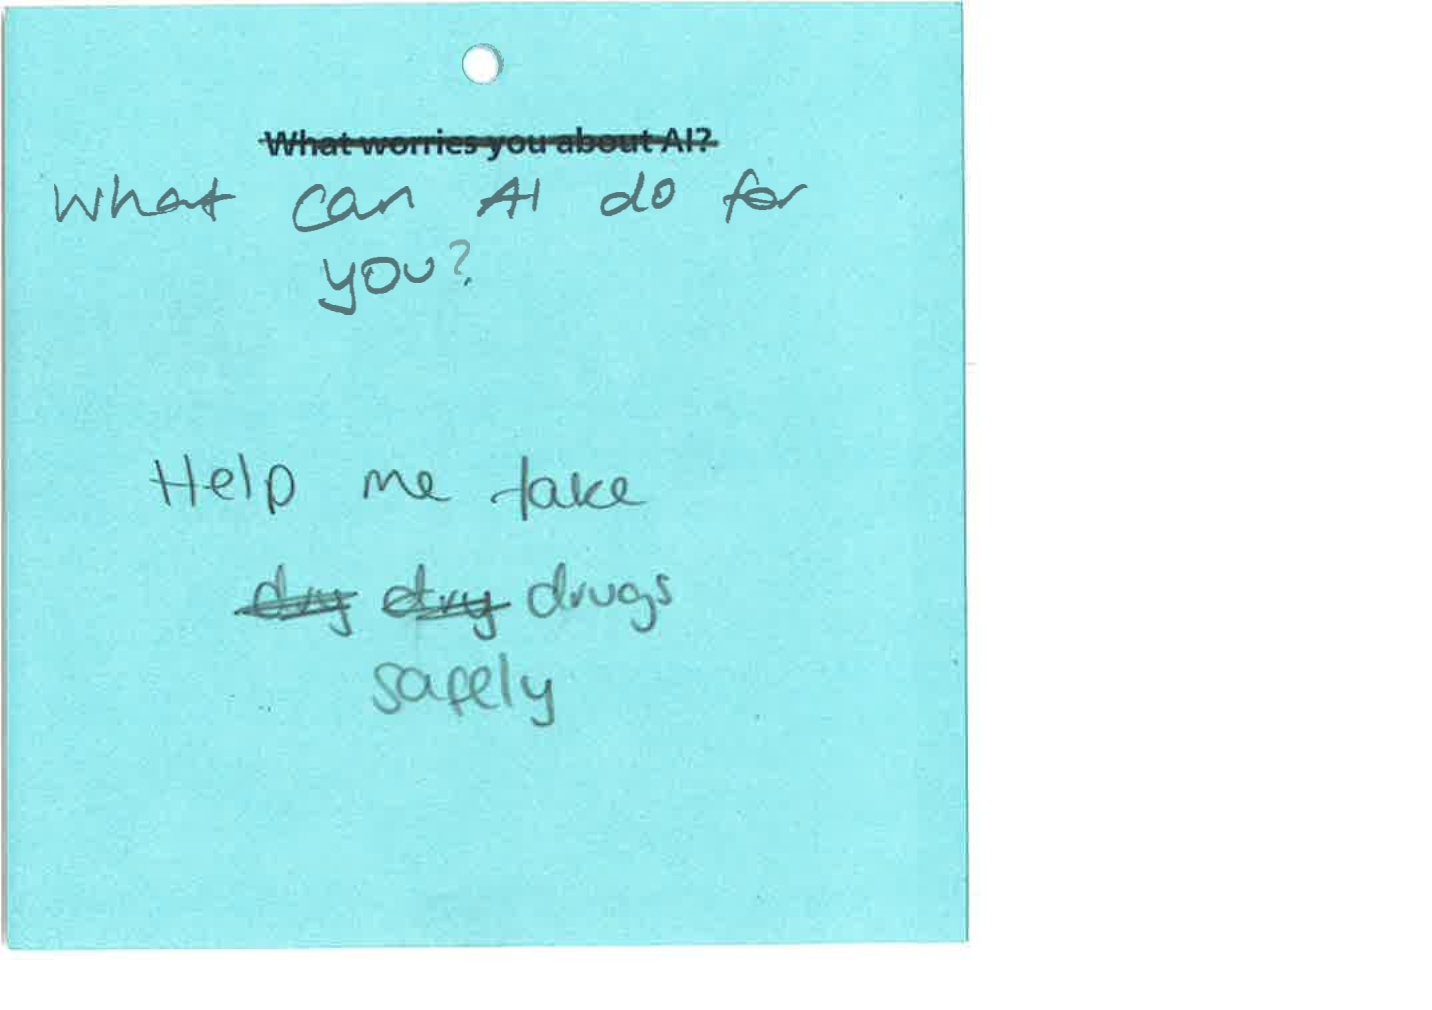 What worries you about AI?
What can AI do for
you?
Help me take
dry dry drugs
safely